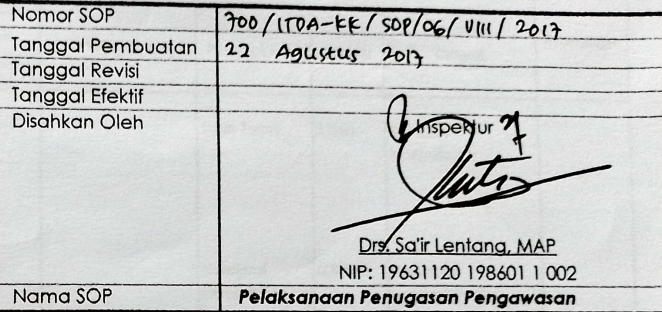 Nomor SOP 700/ITDA-KK/SOP/06/VIII/2017
Tanggal Pembuatan 22 Agustus 2017
Tanggal Revisi
Tanggal Efektif
Disahkan Oleh
Inspektur
Drs. Sa'ir Lentang, MAP
NIP: 19631120 198601 1 002
Nama SOP Pelaksanaan Penugasan Pengawasan